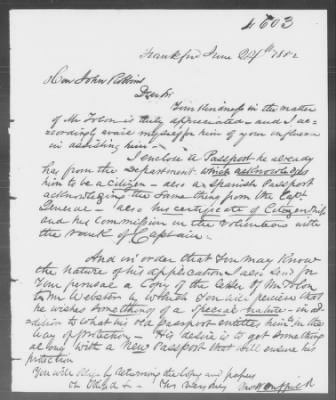 4603
Frankford June 24th 1852
Hon John Robbins
Dear Sir
Your Kindness in the matter
of Mr Tolon is truly appreciated - and I ac-
cordingly avail myself for him of your
in assisting him -
I enclose a Passport he already
has from the department which acknowledges
him to be a citizen - also a Spanish Passport
acknowledging the same thing from the Capt
General - also his certificate of Citizenship
and his Commission in the Volunteers with
the rank of Captain.
And in order that you may know
the nature of his application I also send for
your perusal a Copy of the letter of Mr Tolon
to Mr Webster by which you will perceive that
he wishes something of a special nature - in ad-
dition to what his old passport entitles him in the
way of protection - His desire is to get something
along with a new Passport that will ensure his
protection
You will please by returning the Copy and papers
Yours very truly